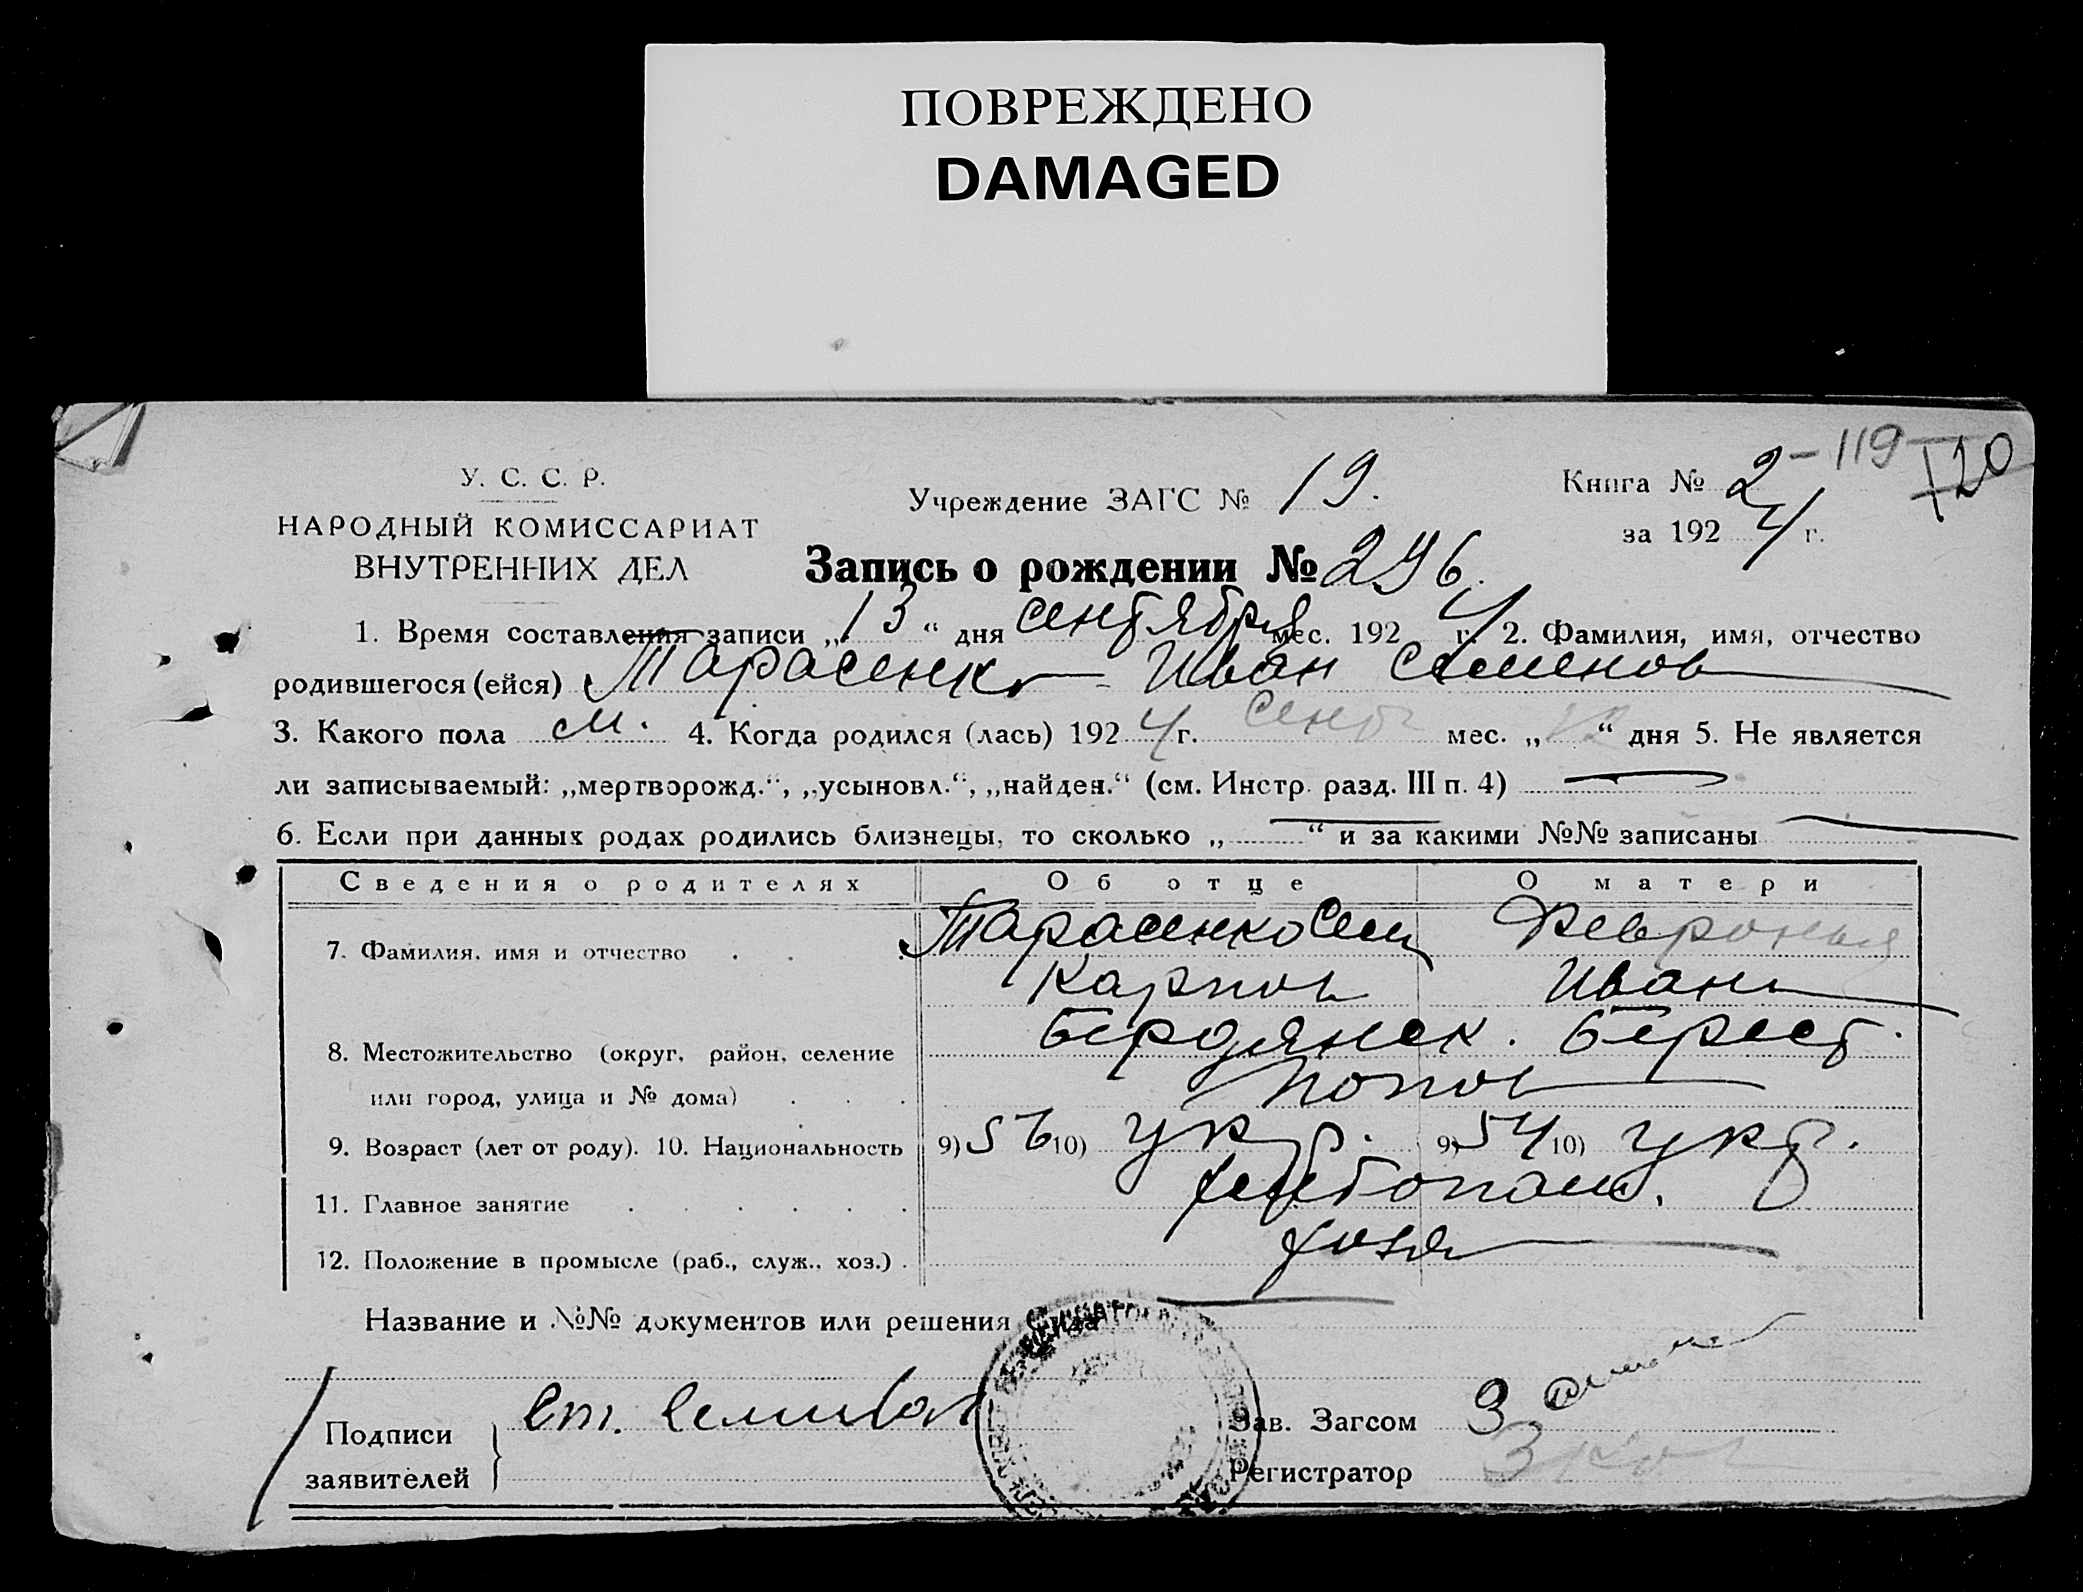 ПОВРЕЖДЕНО
DAMAGED
2-119 120
У. С. С. Р.
НАРОДНЫЙ КОМИССАРИАТ
ВНУТРЕННИХ ДЕЛ
Учреждение ЗАГС № 19.
Книга № 2
за 1924 г.
Запись о рождении № 296.
1. Время составления записи „13“ дня сентября мес. 1924 г. 2. Фамилия, имя, отчество
родившегося (ейся) Тарасенко Иван Семенов
3. Какого пола м. 4. Когда родился (лась) 1924 г. Сент мес. „ “ дня 5. Не является
ли записываемый: „мертворожд.“, „усыновл.“, „найден.“ (см. Инстр. разд. III п. 4)
6. Если при данных родах родились близнецы, то сколько „ “ и за какими №№ записаны
Сведения о родителях Об отце О матери
7. Фамилия, имя и отчество . . . Тарасенко Сем Февронья
Карпов Иван
8. Местожительство (округ, район, селение Бердянск. Берест.
или город, улица и № дома) . . . Попов
9. Возраст (лет от роду). 10. Национальность 9) 56 10) укр. 9) 54 10) укр.
11. Главное занятие . . . . . . хлебопаш.
12. Положение в промысле (раб., служ., хоз.) . хозя
Название и №№ документов или решения Суда
Подписи
заявителей
Зав. Загсом
Регистратор